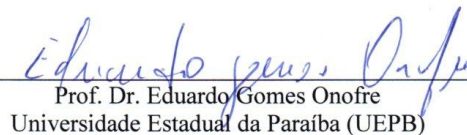 Eduardo Gomes Onofre
Prof. Dr. Eduardo Gomes Onofre
Universidade Estadual da Paraíba (UEPB)